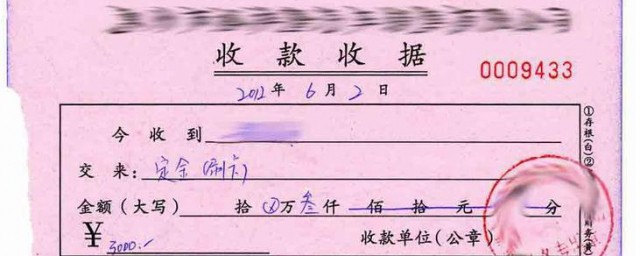 收款收据
0009433
2012年6月2日
今收到
交来：定金(刷卡)
金额（大写） 拾⊗万叁仟佰拾元分
¥3000.- 收款单位(公章)
①存根(白)②